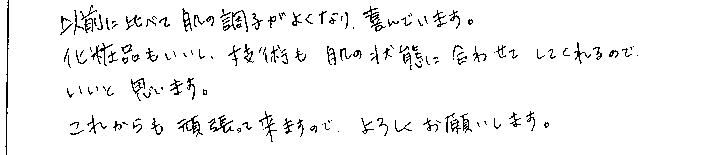 以前に比べて肌の調子がよくなり、喜んでいます。
化粧品もいいし、技術も肌の状態に合わせてしてくれるので、
いいと思います。
これからも頑張って来ますので、よろしくお願いします。